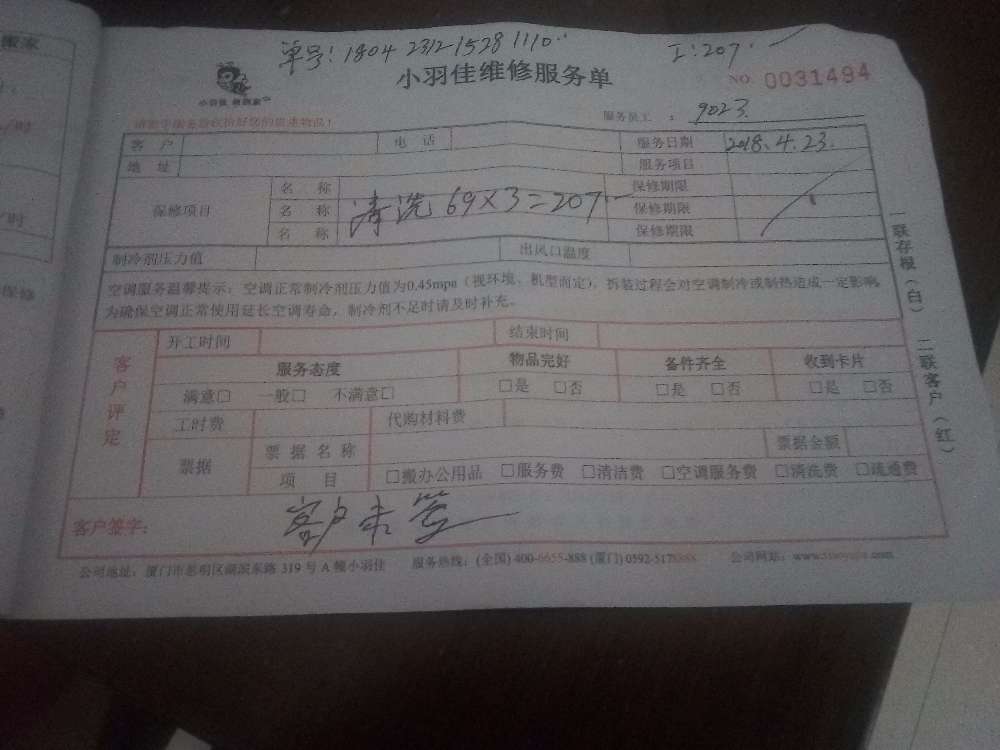 搬家
单号:1804 2312 1528 1110
工:207.
小羽佳维修服务单
NO. 0031494
小羽佳
服务员工 : 9023
客 户 电 话 服务日期 2018.4.23.
地 址 服务项目
保修项目 名 称 保修期限
名 称 清洗 69×3=207 保修期限
名 称 保修期限
制冷剂压力值 出风口温度
空调服务温馨提示:空调正常制冷剂压力值为0.45mpa(视环境、机型而定),拆装过程会对空调制冷或制热造成一定影响
为确保空调正常使用延长空调寿命,制冷剂不足时请及时补充。
客户评定
开工时间 结束时间
服务态度 物品完好 备件齐全 收到卡片
满意□ 一般□ 不满意□ □是 □否 □是 □否 □是 □否
工时费 代购材料费
票据 票据名称 票据金额
项 目 □搬办公用品 □服务费 □清洁费 □空调服务费 □清洗费 □疏通费
客户签字: 客户未签
公司地址:厦门市思明区湖滨东路 319 号 A 幢小羽佳 服务热线:(全国) 400-6655-888 (厦门) 0592-5178888 公司网站:
一联存根(白) 二联客户(红)
保修